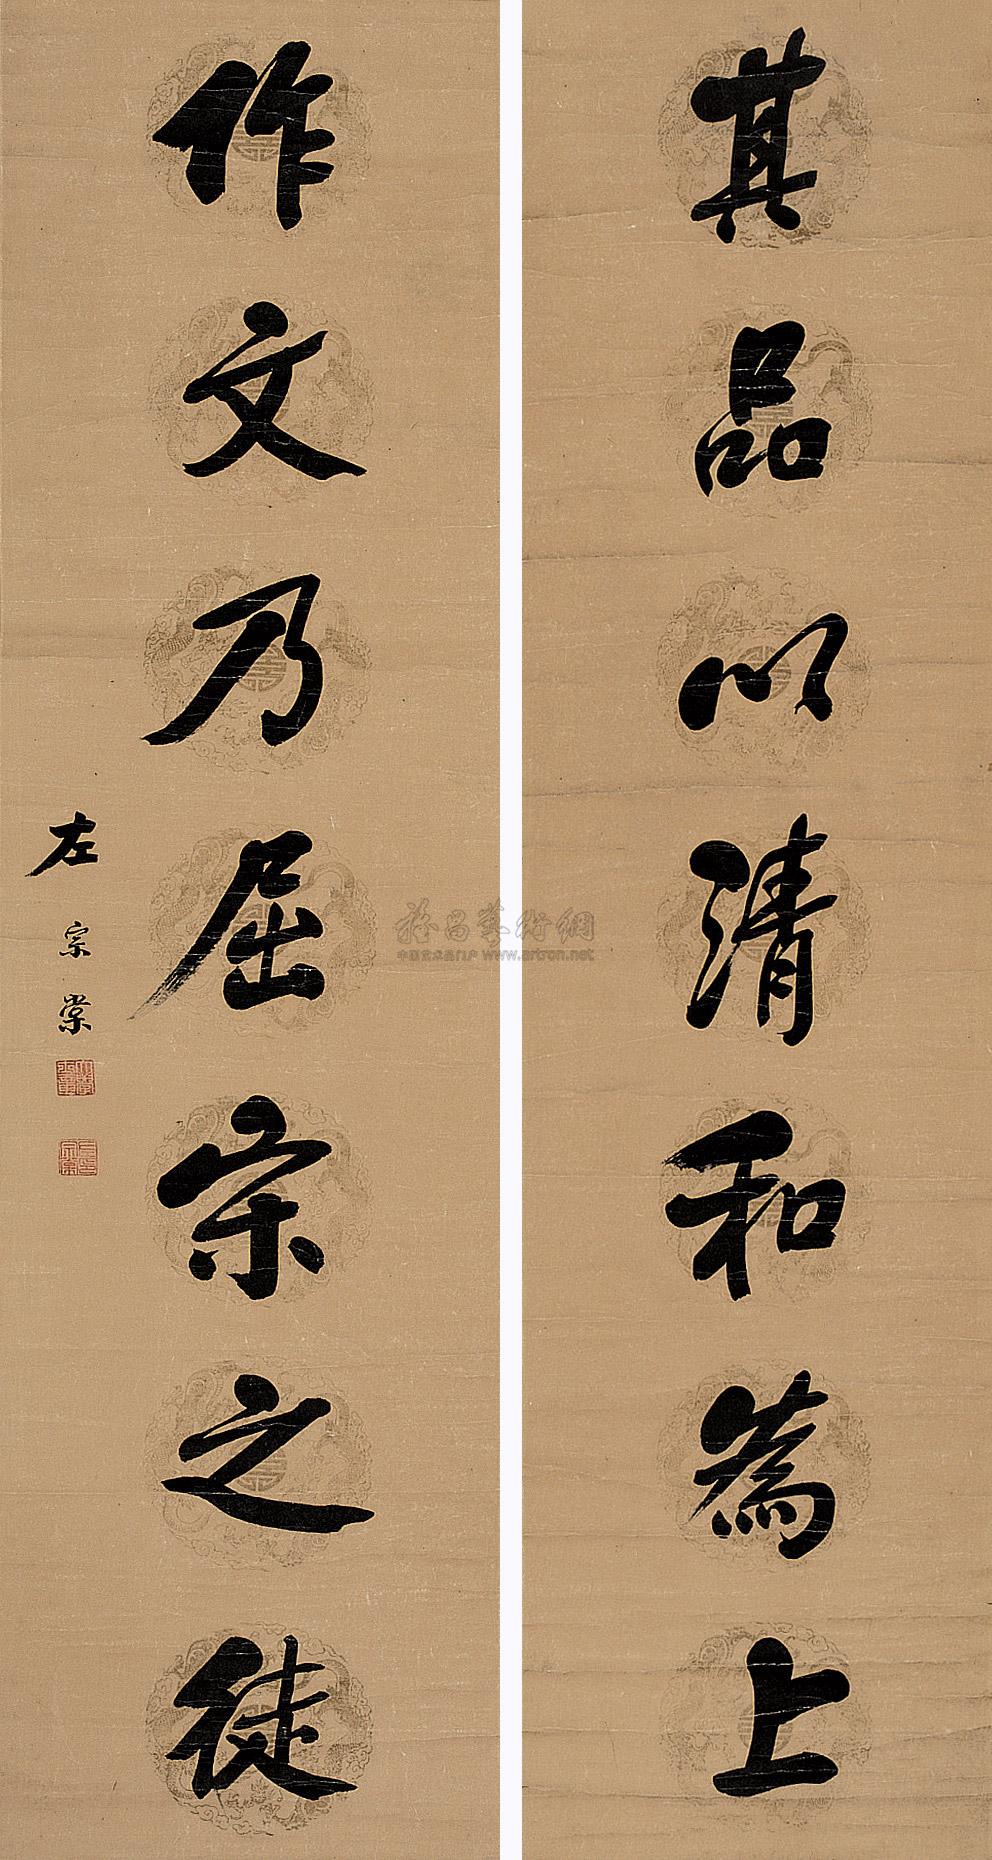 其品以清和為上
作文乃屈宋之徒
左宗棠
雅昌藝術網
中国艺术品门户 www.artron.net